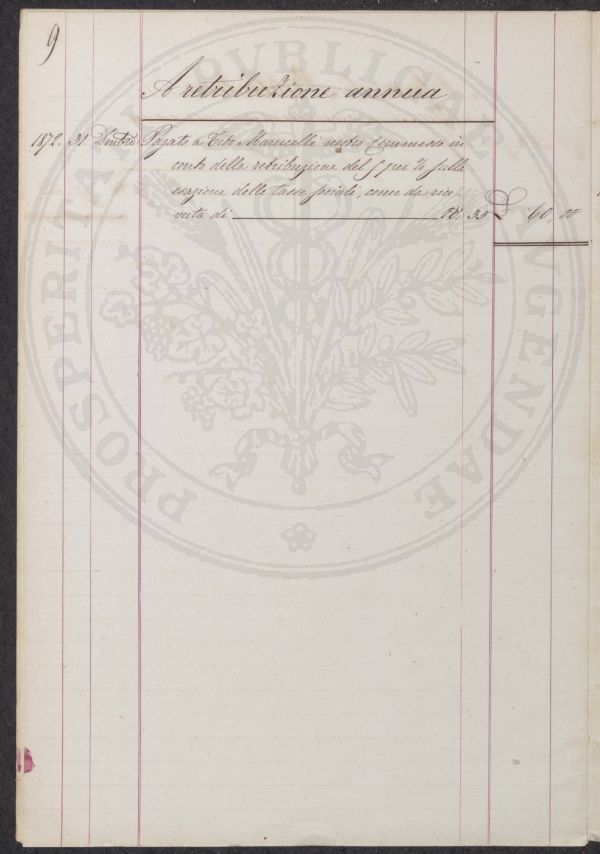 9
A retribuzione annua
1872. 31 Dmbre Pagato a Tito Marucelli nostro commesso in
conto della retribuzione del 5 per % sulla
esazione delle tasse sociali, come da rice-
vuta di N.° 35 £ 60,00
PROSPERITATI PUBLICAE AUGENDAE